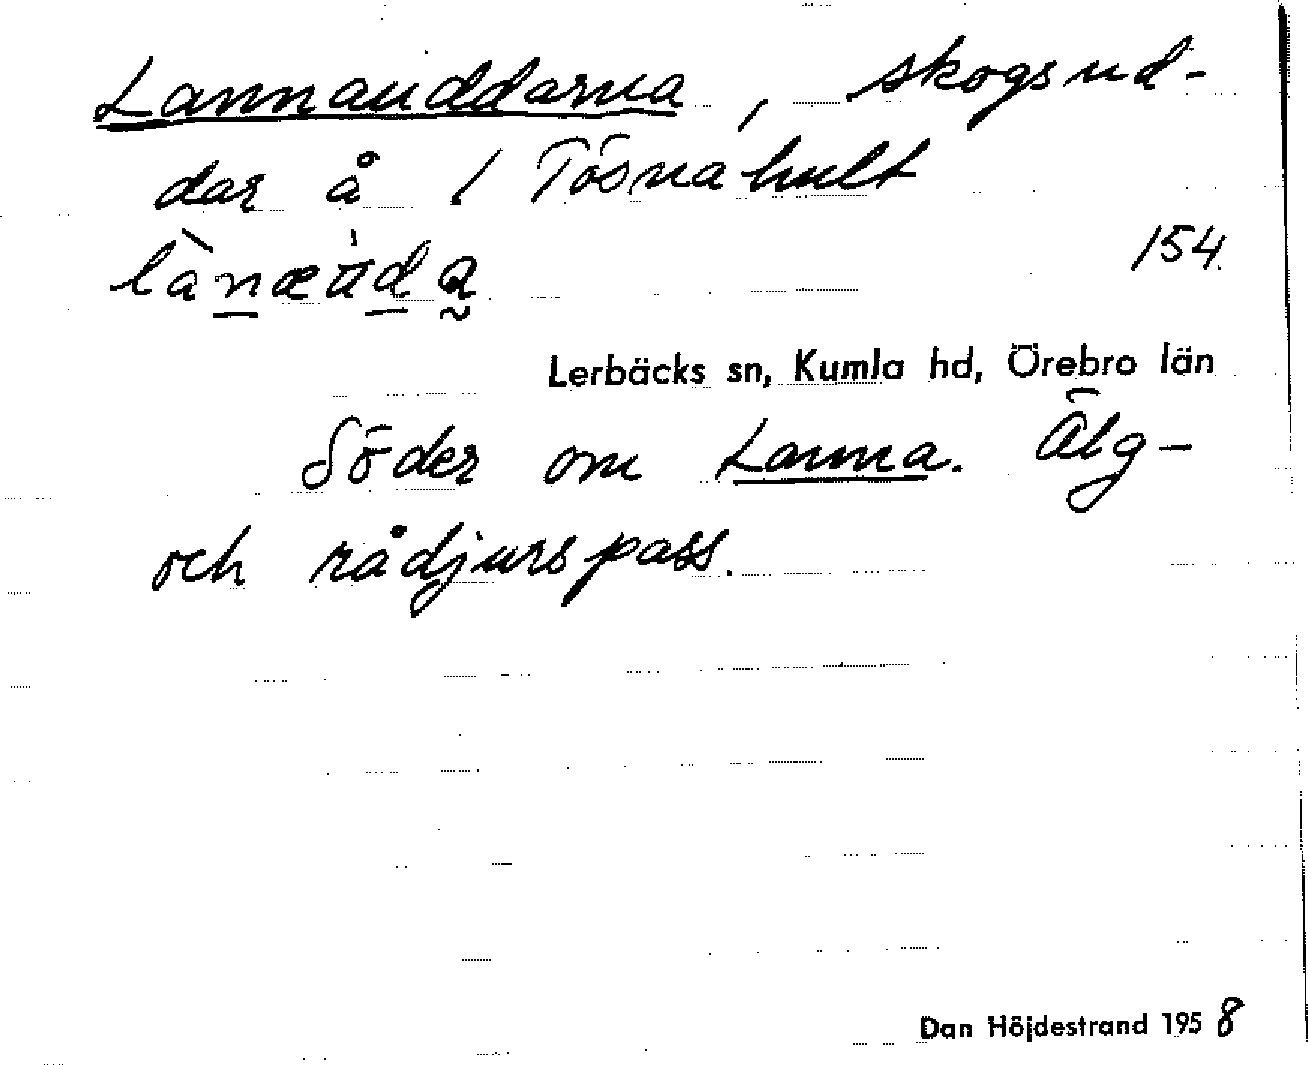 Lannauddarna, skogsud-
dar å / Tösnahult
lànæùda
154.
Lerbäcks sn, Kumla hd, Örebro län
Söder om Lanna. Älg-
och rådjurspass.
Dan Höjdestrand 1958